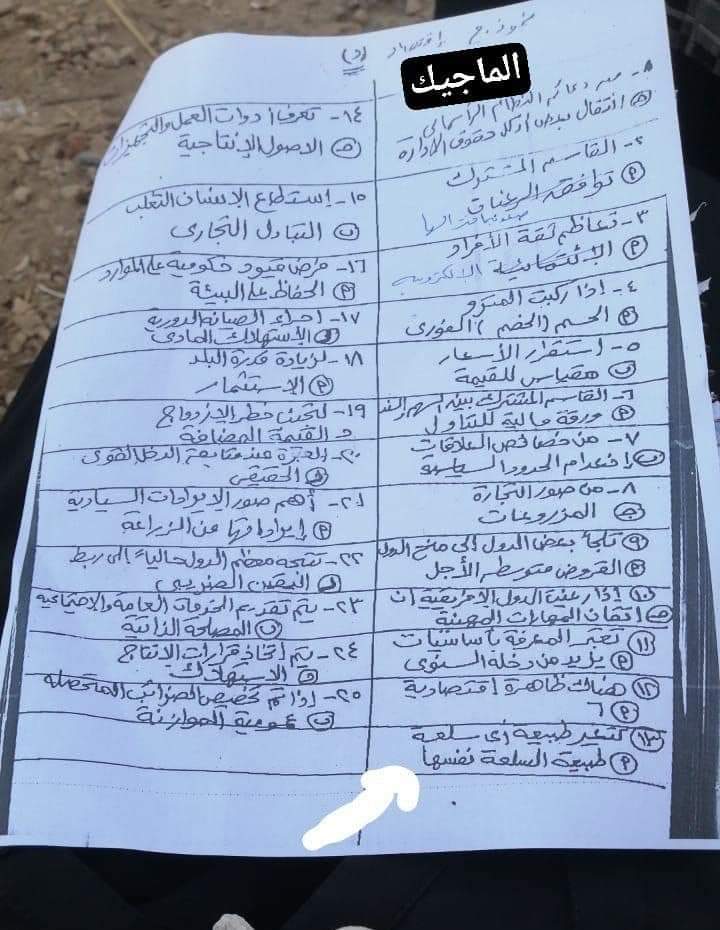 نموذج إقتصاد (د)
الماجيك
من دعائم النظام الرأسمالى
انتقال بعض أو كل حقوق الإدارة
٢- القاسم المشترك
توافقه الرغبات
٣- تعاظم ثقة الأفراد
الإئتمانية الإلكترونية
٤- إذا ركبت المترو
الحسم (الخصم) الفورى
٥- استقرار الأسعار
مقياس للقيمة
٦- القاسم المشترك بين السهم والسند
ورقة مالية للتداول
٧- من خصائص العلاقات
إنعدام الحدود السياسية
٨- من صور التجارة
المزروعات
٩ تلجأ بعض الدول إلى منح الدول
القروض متوسطه الأجل
١٠ إذا رغبت الدول الإفريقية أن
إتقان المهارات المهنية
١١ تعتبر المعرفة بأساسيات
يزيد من دخله السنوى
١٢ هناك ظاهرة إقتصادية
٦
١٣ تتغير طبيعة أى سلعة
طبيعة السلعة نفسها
١٤- تعرف أدوات العمل والتجهيزات
الاصول الإنتاجية
١٥- إستطاع الإنسان التغلب
التبادل التجارى
١٦- فرض قيود حكومية على الموارد
الحفاظ على البيئة
١٧- إجراء الصيانة الدورية
الاستهلاك المادى
١٨- لزيادة قدرة البلد
الاستثمار
١٩- لتجنب خطر الإزدواج
د القيمة المضافة
٢٠- العبرة عند متابعة الدخل القومى
الحقيقى
٢١- أهم صور الإيرادات السيادية
إيراداتها من الزراعة
٢٢- تتجه معظم الدول حالياً إلى ربط
النقدين الضريبى
٢٣- يتم تقديم الخدمات العامة والإجتماعية
المصلحة الذاتية
٢٤- يتم اتخاذ قرارات الإنتاج
الاستهلاك
٢٥- إذا تم تخصيص الضرائب المتحصله
عمومية الموازنة